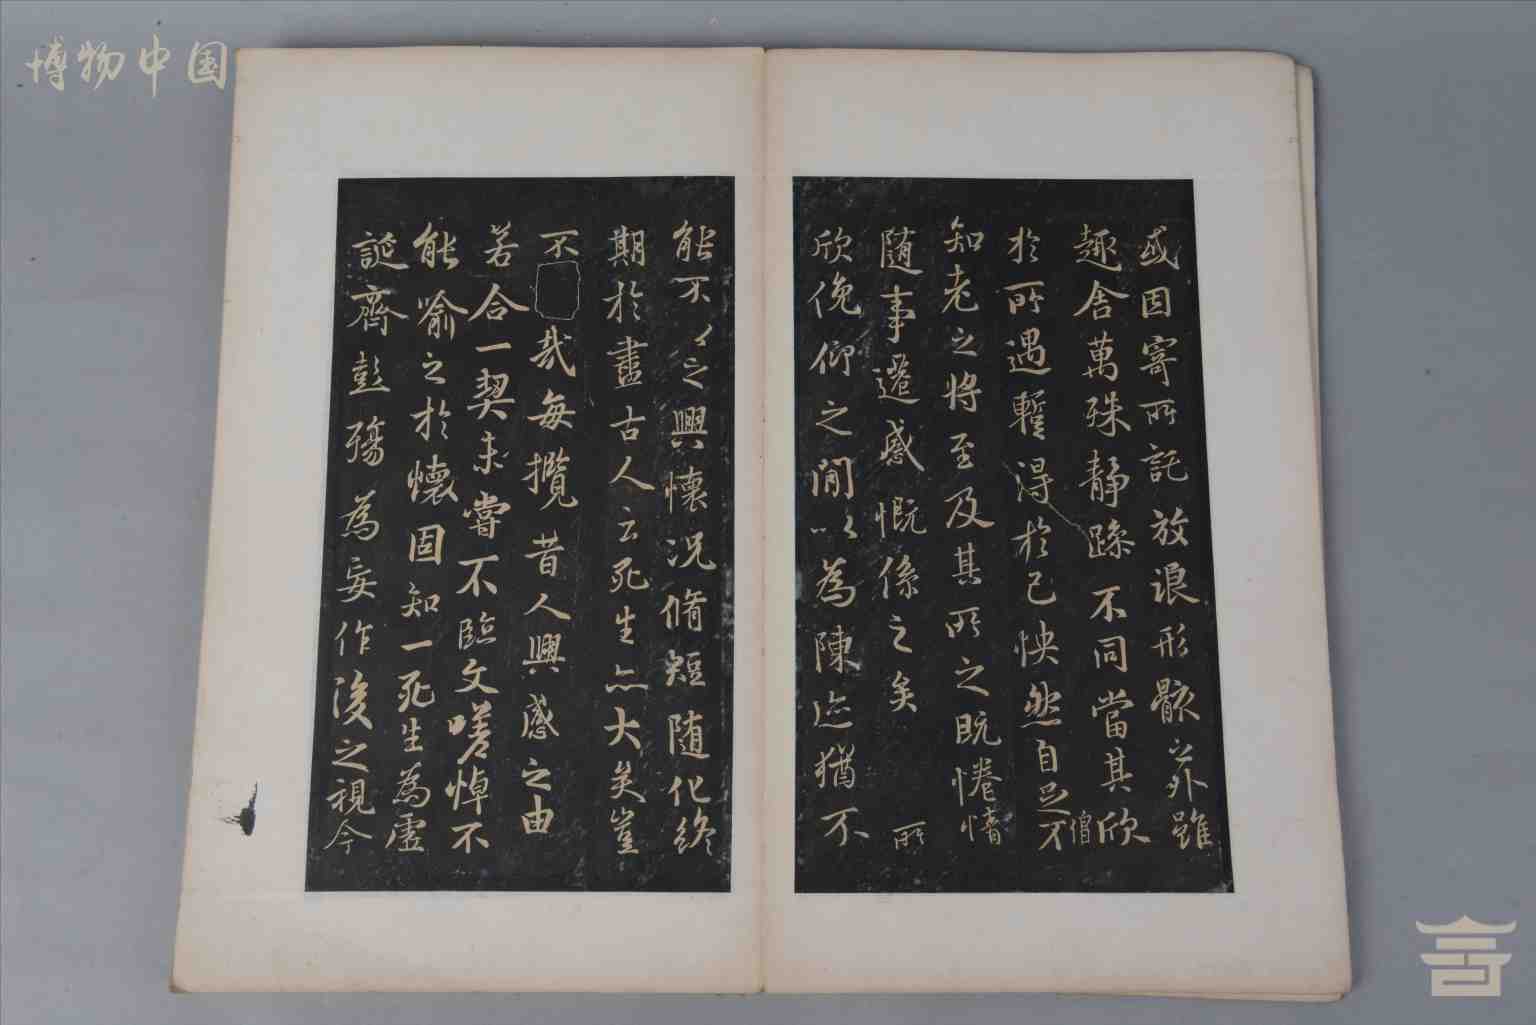 博物中国
或因寄所託放浪形骸之外雖
趣舍萬殊静躁不同當其欣
僧
於所遇蹔得於己怏然自足不
知老之將至及其所之既惓情
隨事遷感慨係之矣 所
欣俛仰之間以為陳迹猶不
能不以之興懷況脩短隨化終
期於盡古人云死生亦大矣豈
不哉每攬昔人興感之由
若合一契未嘗不臨文嗟悼不
能喻之於懷固知一死生為虛
誕齊彭殤為妄作後之視今